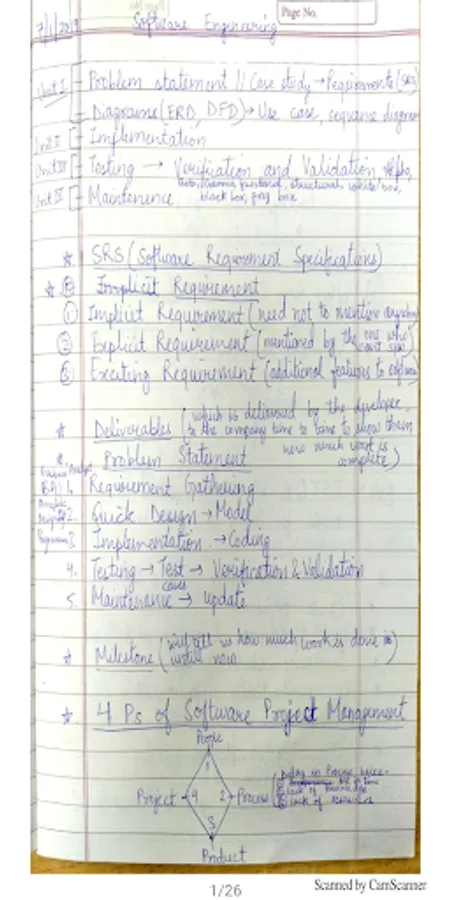 Page No.
7/1/2019 Software Engineering
Unit I Problem statement // Case study → Requirements (SRS)
Diagrams (ERD, DFD) → Use case, sequence diagram
Unit II Implementation
Unit III Testing → Verification and Validation
functional, structural, white box,
black box, grey box
Unit IV Maintenence
* SRS (Software Requirement Specifications)
* Implicit Requirement
① Implicit Requirement (need not to mention
② Explicit Requirement (mentioned by the one who
③ Exciting Requirement (additional features to
* Deliverables (which is delivered by the developer
to the company time to time to show them
how much work is
complete)
* Problem Statement
1. Requirement Gathering
2. Quick Design → Model
3. Implementation → Coding
4. Testing → Test → Verification & Validation
cases
5. Maintenance → update
* Milestone (will tell us how much work is done
until now
* 4 Ps of Software Project Management
People
1
Project 4 2 Process
Delay in Process
lack of knowledge
lack of resources
3
Product
1/26
Scanned by CamScanner